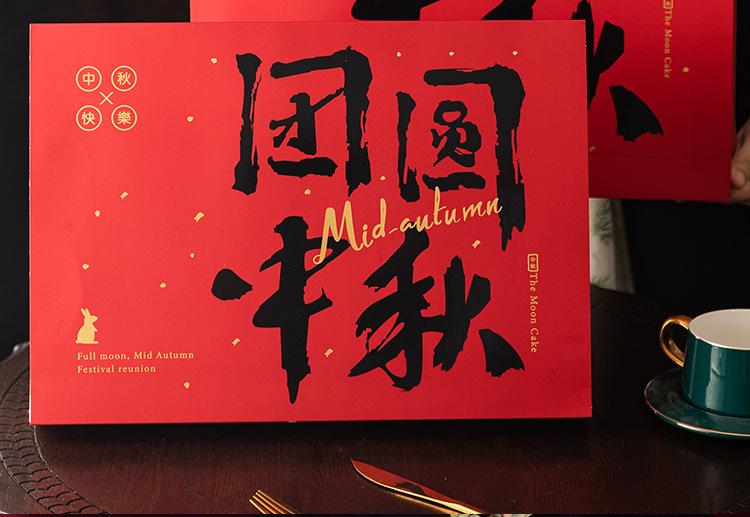 中秋
快樂
团圆
Mid-autumn
中秋
中秋 The Moon Cake
Full moon, Mid Autumn
Festival reunion
The Moon Cake